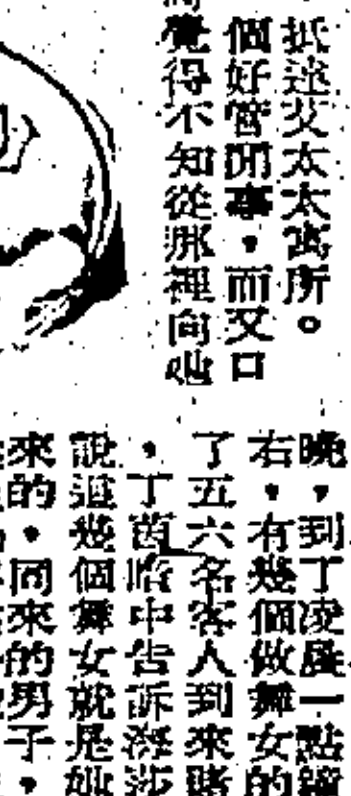 抵達艾太太寓所。
個好管閒事，而又口
覺得不知從那裡向她
晚，到了凌晨一點鐘
右，有幾個做舞女的
了五六名客人到來賭
，丁茵暗中告訴海莎
說道幾個舞女就是她
來的，同來的男子，